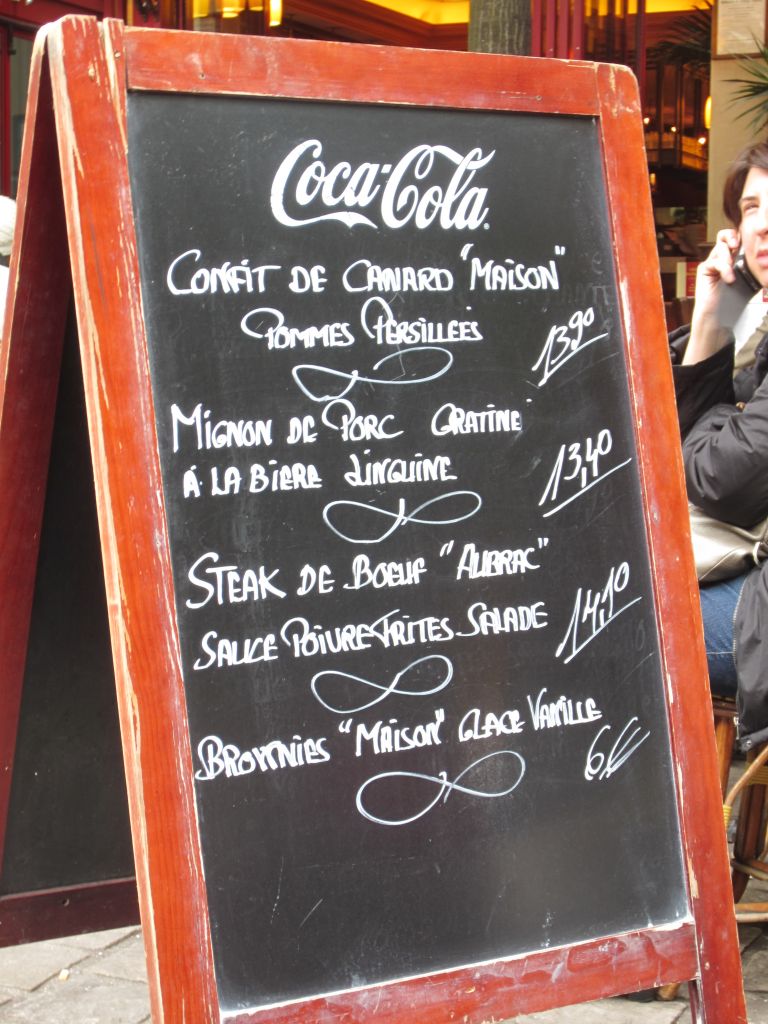 Coca-Cola
CONFIT DE CANARD "MAISON"
POMMES PERSILLEES
13,90
MIGNON DE PORC GRATINÉ
À LA BIERE LINGUINE
13,40
STEAK DE BOEUF "AUBRAC"
SAUCE POIVRE FRITES SALADE
14,10
BROWNIES "MAISON" GLACE VANILLE
6€